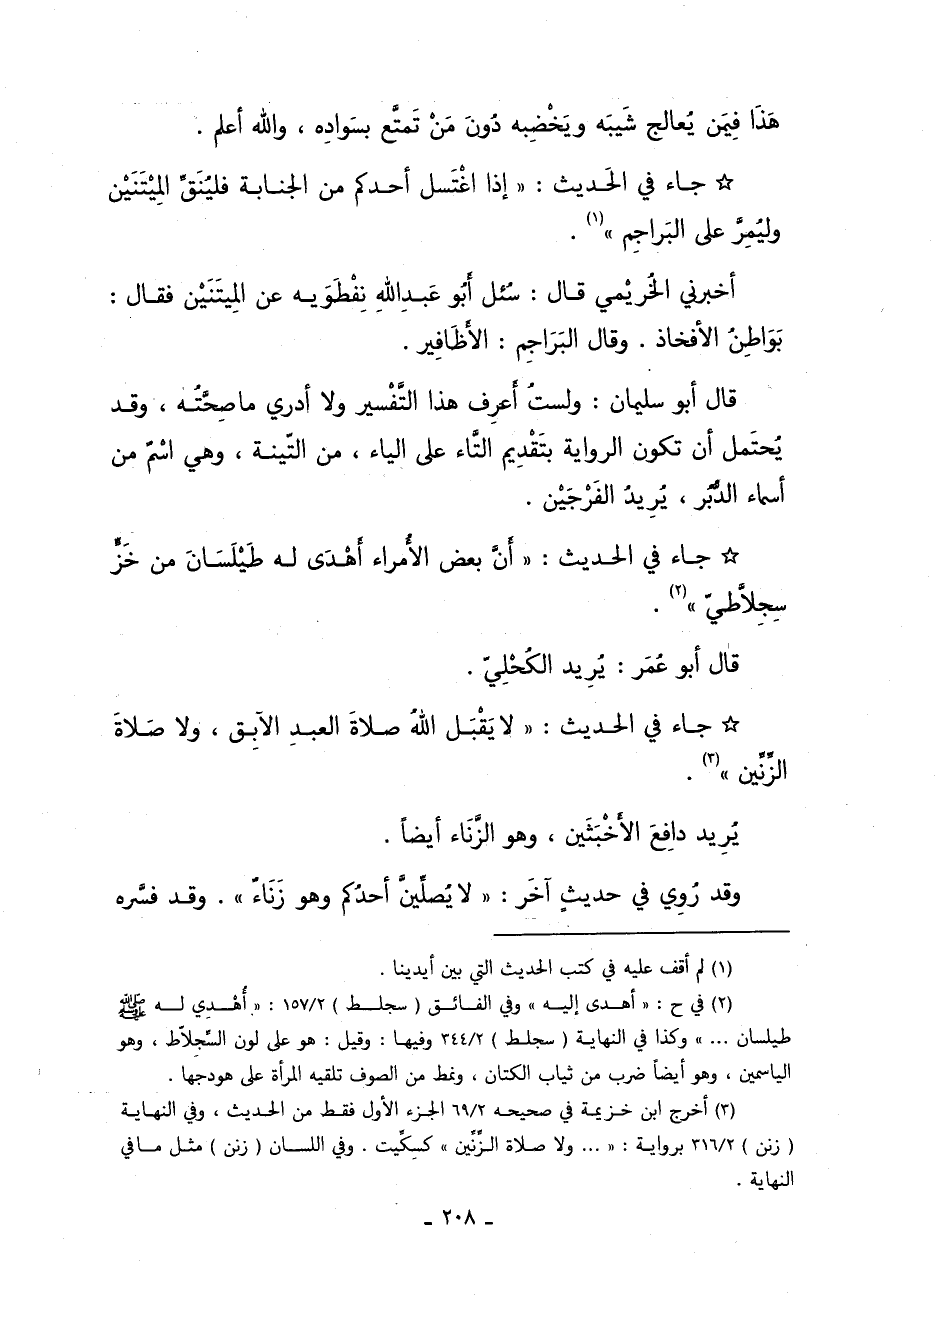 هَذَا فِيمَن يُعالج شَيبَه ويَخْضِبه دُونَ مَنْ تَمتَّع بسَوادِه ، والله أعلم .
☆ جاء في الحَديث : « إذا اغْتَسل أحدكم من الجنابة فليُنَقِّ المِيْتَنَيْن
وليُمِرَّ على البَراجِم »(١) .
أخبرني الخُريْمي قال : سُئل أَبُو عَبدِاللهِ نِفْطَوَيه عن المِيتَنَيْن فقال :
بَوَاطِنُ الأفخاذ . وقال البَرَاجِم : الأَظَافِير .
قال أبو سليمان : ولستُ أَعرِف هذا التَّفْسير ولا أدري ماصِحَّتُه ، وقد
يُحتَمل أن تكون الرواية بتَقْدِيم التَّاء على الياء ، من التِّينة ، وهي اسْمٌ من
أسماء الدُّبُر ، يُرِيدُ الفَرْجَيْن .
☆ جاء في الحديث : « أَنَّ بعض الأُمراء أَهْدَى له طَيْلَسَانَ من خَزٍّ
سِجِلاَّطيّ »(٢) .
قال أبو عُمَر : يُرِيد الكُحْلِيّ .
☆ جاء في الحديث : « لايَقْبَل اللهُ صلاةَ العبدِ الآبِق ، ولا صَلاةَ
الزِّنِّين »(٣) .
يُرِيد دافِعَ الأَخْبَثَين ، وهو الزَّنَاء أيضاً .
وقد رُوِي في حديثٍ آخَر : « لايُصلِّينَّ أحدُكم وهو زَنَاءٌ » . وقد فسَّره
(١) لم أقف عليه في كتب الحديث التي بين أيدينا .
(٢) في ح : « أهدى إليه » وفي الفائق ( سجلط ) ١٥٧/٢ : « أُهْدِي له ﷺ
طيلسان ... » وكذا في النهاية ( سجلط ) ٣٤٤/٢ وفيها : وقيل : هو على لون السِّجلاّط ، وهو
الياسمين ، وهو أيضاً ضرب من ثياب الكتان ، ونمط من الصوف تلقيه المرأة على هودجها .
(٣) أخرج ابن خزيمة في صحيحه ٦٩/٢ الجزء الأول فقط من الحديث ، وفي النهاية
( زنن ) ٣١٦/٢ برواية : « ... ولا صلاة الزِّنِّين » كسِكِّيت . وفي اللسان ( زنن ) مثل مافي
النهاية .
ـ ٢٠٨ ـ